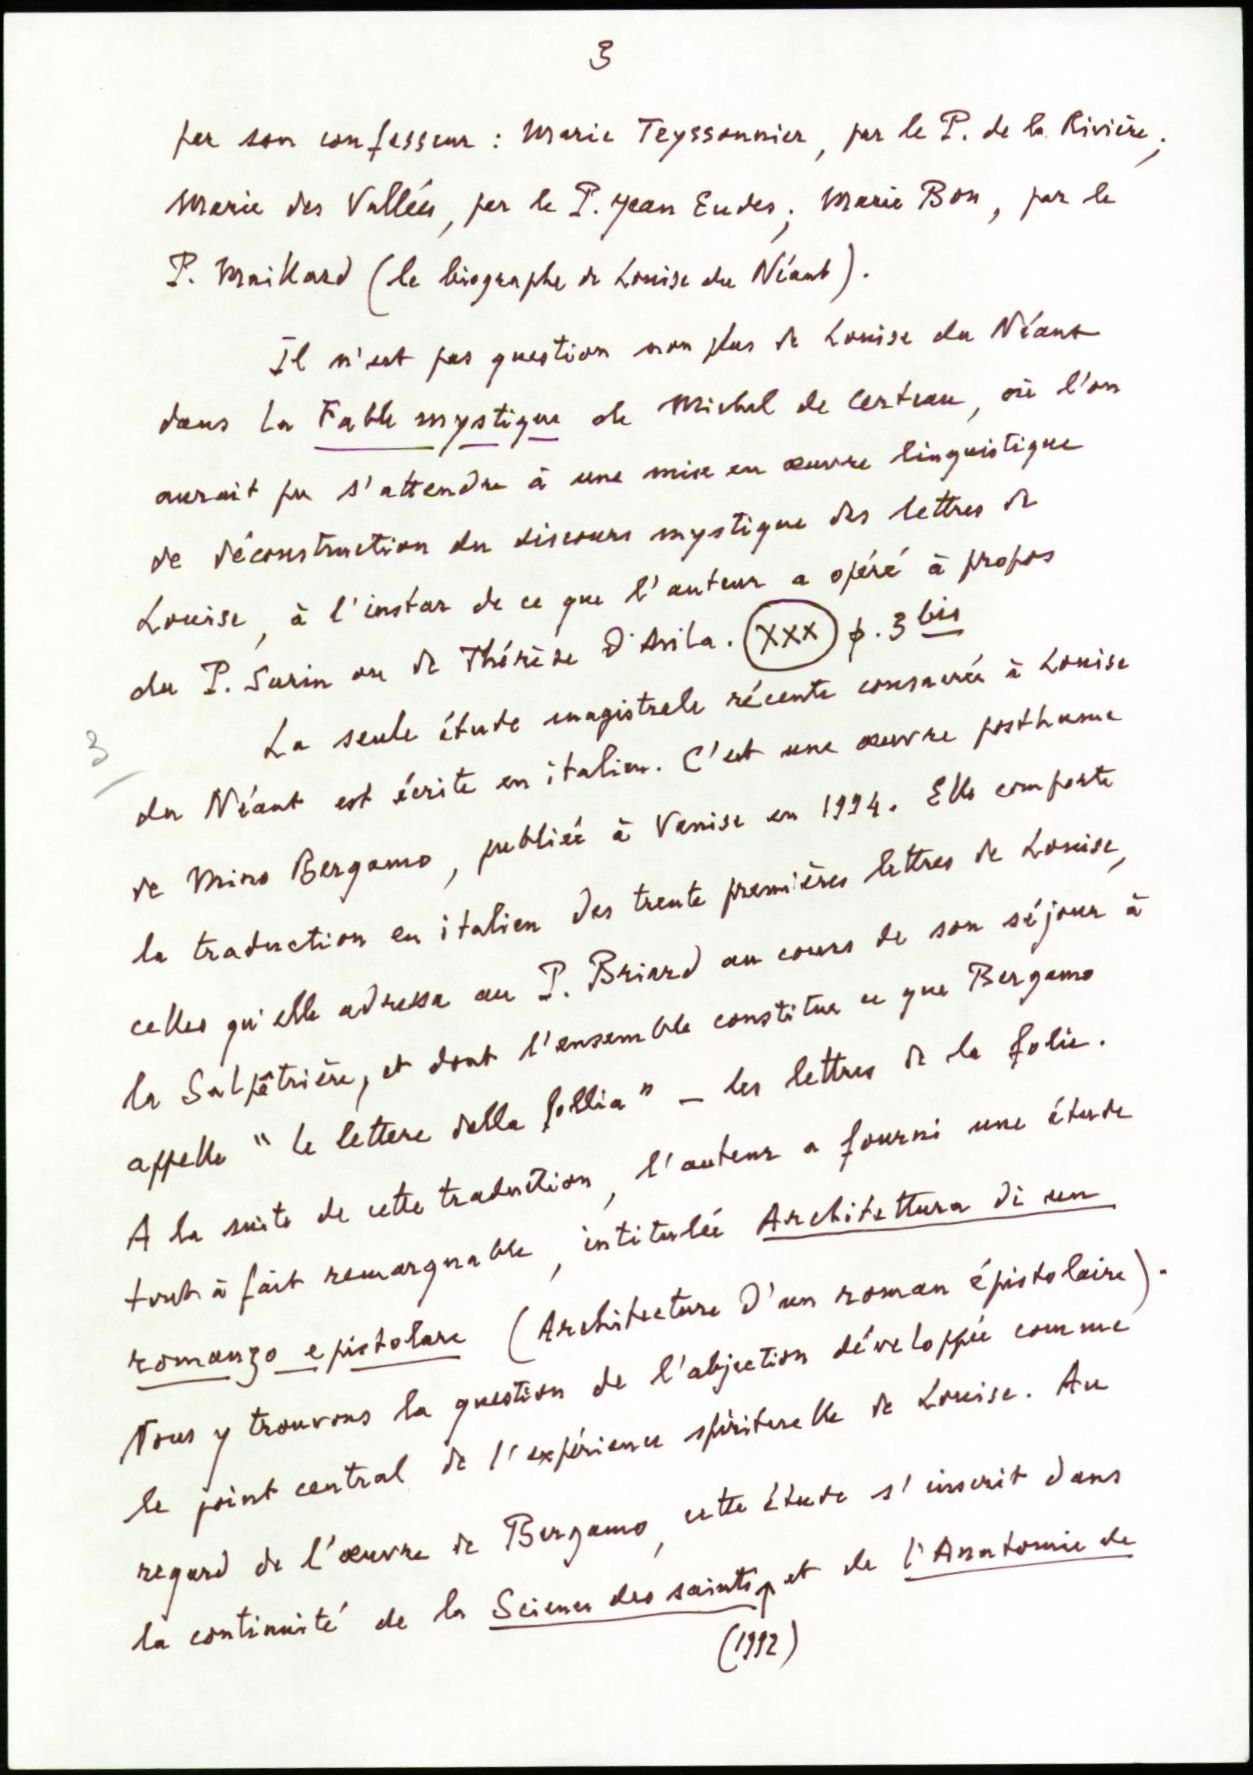 3
par son confesseur : Marie Teyssonnier, par le P. de la Rivière ;
Marie des Vallées, par le P. Jean Eudes ; Marie Bon, par le
P. Maillard (le biographe de Louise du Néant).
Il n'est pas question non plus de Louise du Néant
dans La Fable mystique de Michel de Certeau, où l'on
aurait pu s'attendre à une mise en œuvre linguistique
de déconstruction du discours mystique des lettres de
Louise, à l'instar de ce que l'auteur a opéré à propos
du P. Surin ou de Thérèse d'Avila. XXX p. 3 bis
3
La seule étude magistrale récente consacrée à Louise
du Néant est écrite en italien. C'est une œuvre posthume
de Mino Bergamo, publiée à Venise en 1994. Elle comporte
la traduction en italien des trente premières lettres de Louise,
celles qu'elle adressa au P. Briard au cours de son séjour à
la Salpêtrière, et dont l'ensemble constitue ce que Bergamo
appelle "le lettere della follia" – les lettres de la folie.
A la suite de cette traduction, l'auteur a fourni une étude
tout à fait remarquable, intitulée Architettura di un
romanzo epistolare (Architecture d'un roman épistolaire).
Nous y trouvons la question de l'abjection développée comme
le point central de l'expérience spirituelle de Louise. Au
regard de l'œuvre de Bergamo, cette étude s'inscrit dans
la continuité de la Science des saints, et de l'Anatomie de
(1992)